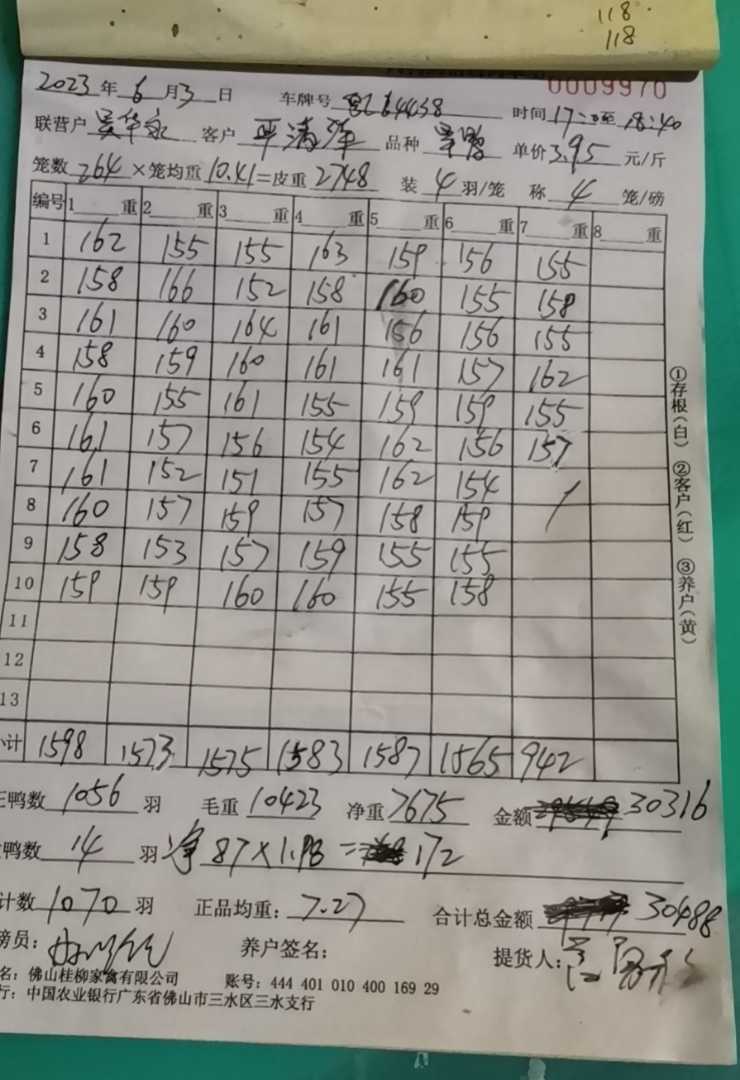 118
118
0009970
2023年6月3日 车牌号 时间17: 至18:40
联营户 客户 品种 单价3.95元/斤
笼数264×笼均重10.41=皮重2748 装4羽/笼 称4笼/磅
编号 1 重 2 重 3 重 4 重 5 重 6 重 7 重 8 重
1 162 155 155 163 159 156 155
2 158 166 152 158 160 155 158
3 161 160 164 161 156 156 155
4 158 159 160 161 161 157 162
5 160 155 161 155 159 159 155
6 161 157 156 154 162 156 157
7 161 152 151 155 162 154
8 160 157 159 157 158 159
9 158 153 157 159 155 155
10 159 159 160 160 155 158
11
12
13
小计 1598 1573 1575 1583 1587 1565 942
正鸭数1056羽 毛重10423 净重7675 金额30316
鸭数14羽 净87×1.98=172
计数1070羽 正品均重:7.27 合计总金额30488
磅员: 养户签名: 提货人:
名:佛山桂柳家禽有限公司 账号:444 401 010 400 169 29
行:中国农业银行广东省佛山市三水区三水支行
①存根(白) ②客户(红) ③养户(黄)